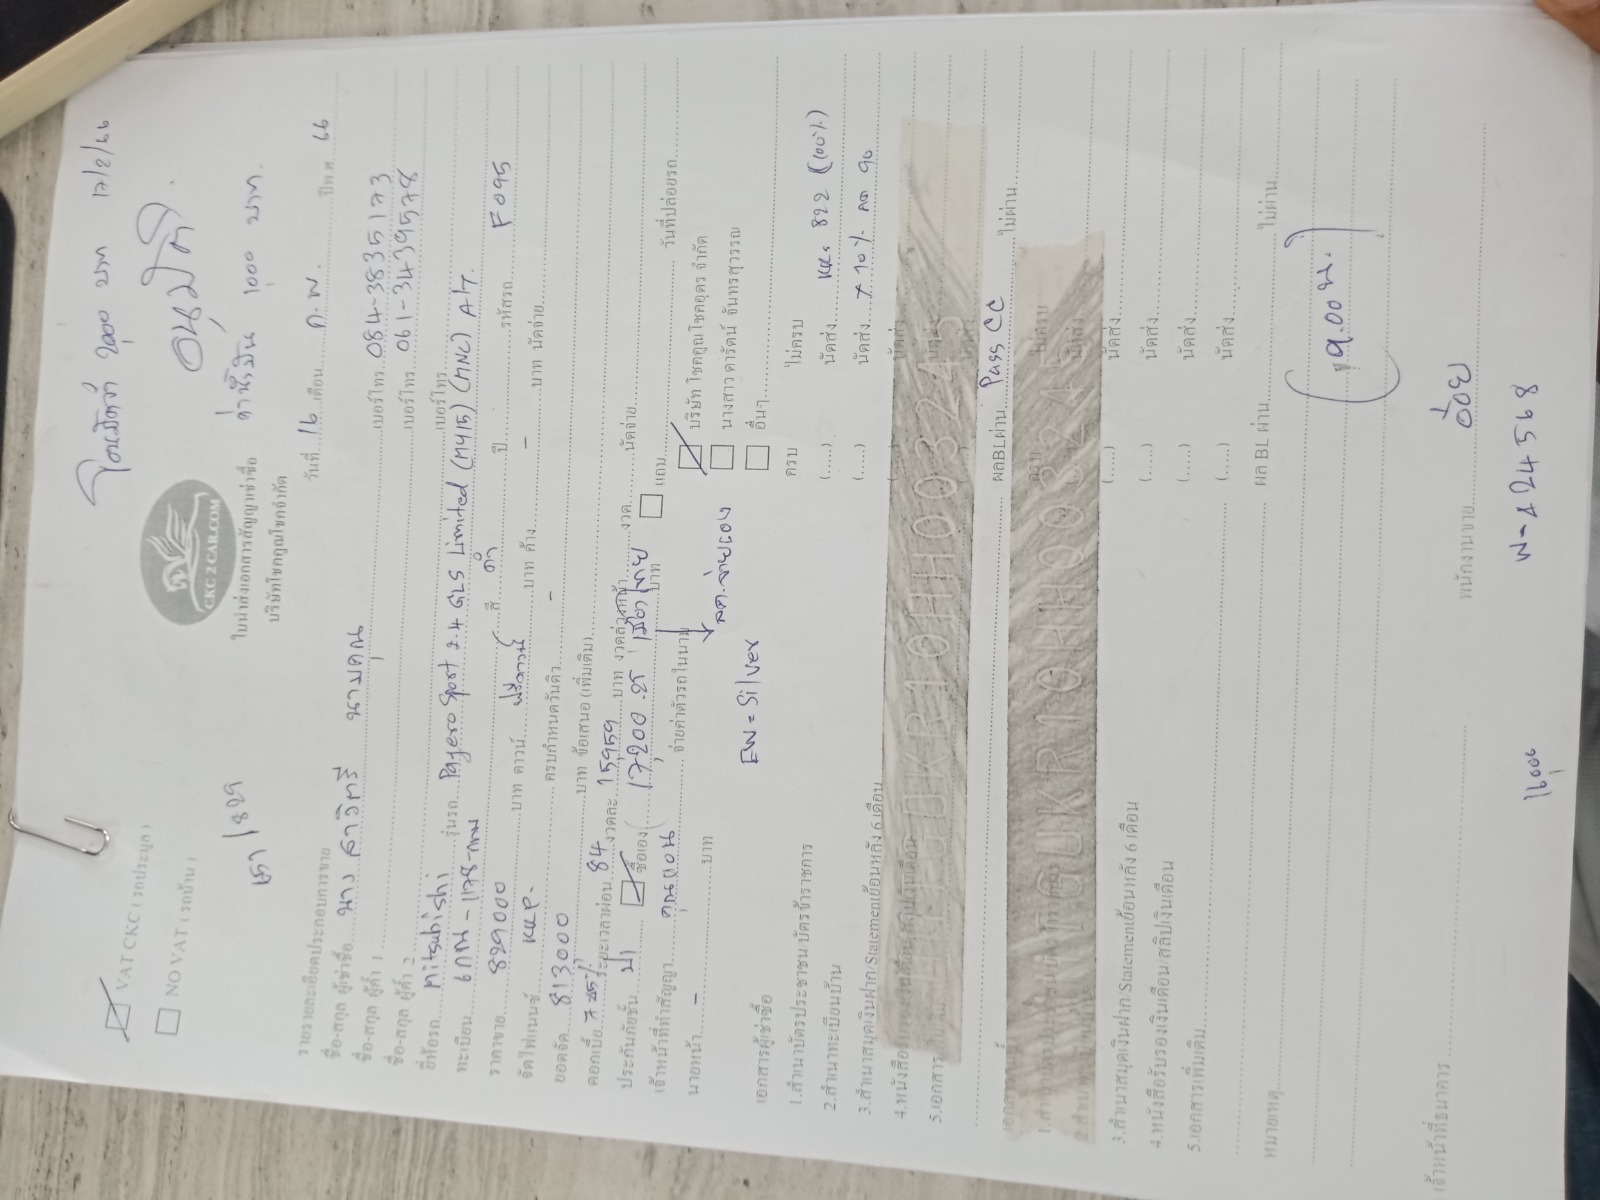 โอนมัดจำ 2,000 บาท 17/2/66
อนุมัติ
VAT CKC ( รถประมูล )
NO VAT ( รถบ้าน )
CKC 2 CAR.COM
ใบนำส่งเอกสารสัญญาเช่าซื้อ
บริษัทโชคคูณโชคจำกัด
ค่าน้ำมัน 1,000 บาท.
วันที่ 16 เดือน ก.พ. ปีพ.ศ. 66
รายรายละเอียดประกอบการขาย
ชื่อ-สกุล ผู้เช่าซื้อ นาง สาวิตรี
ชื่อ-สกุล ผู้ค้ำ 1 เบอร์โทร. 084-3835173
ชื่อ-สกุล ผู้ค้ำ 2 เบอร์โทร. 061-3439578
ยี่ห้อรถ Mitsubishi รุ่นรถ Pajero Sport 2.4 GLS Limited (MY15) (MNC) A/T เบอร์โทร
ทะเบียน 6กฌ-1178-กทม สี ดำ ปี รหัสรถ F095
ราคาขาย 829000 บาท ดาวน์ ฟรีดาวน์ บาท ค้าง - บาท นัดจ่าย
จัดไฟแนนซ์ KKP. ครบกำหนดวันคิว -
ยอดจัด 813000 บาท ข้อเสนอ (เพิ่มเติม)
ดอกเบี้ย 7.25% ระยะเวลาผ่อน 84 งวดละ 15,959 บาท งวดล่วงหน้า งวด นัดจ่าย
ประกันภัยชั้น ป1 ซื้อเอง ( 17,200 บาท แถม
เจ้าหน้าที่ทำสัญญา จ่ายค่าตัวรถในนาม บริษัท โชคคูณโชคอุดร จำกัด วันที่ปล่อยรถ
นายหน้า - บาท นางสาว ดารัตน์ จันทรสุวรรณ
อื่นๆ
EW = Silver
เอกสารผู้เช่าซื้อ ครบ ไม่ครบ
1.สำเนาบัตรประชาชน บัตรข้าราชการ (....) นัดส่ง KKP 822 (100%)
2.สำเนาทะเบียนบ้าน (....) นัดส่ง
3.สำเนาสมุดเงินฝาก/Statementย้อนหลัง 6 เดือน
4.หนังสือ
5.เอกสาร
ผลBLผ่าน Pass CC ไม่ผ่าน
3.สำเนาสมุดเงินฝาก/Statementย้อนหลัง 6 เดือน (....) นัดส่ง
4.หนังสือรับรองเงินเดือน/สลิปเงินเดือน (....) นัดส่ง
5.เอกสารเพิ่มเติม (....) นัดส่ง
(....) นัดส่ง
หมายเหตุ ผล BL ผ่าน ไม่ผ่าน
9.00 น.
เจ้าหน้าที่ธนาการ พนักงานขาย
16000